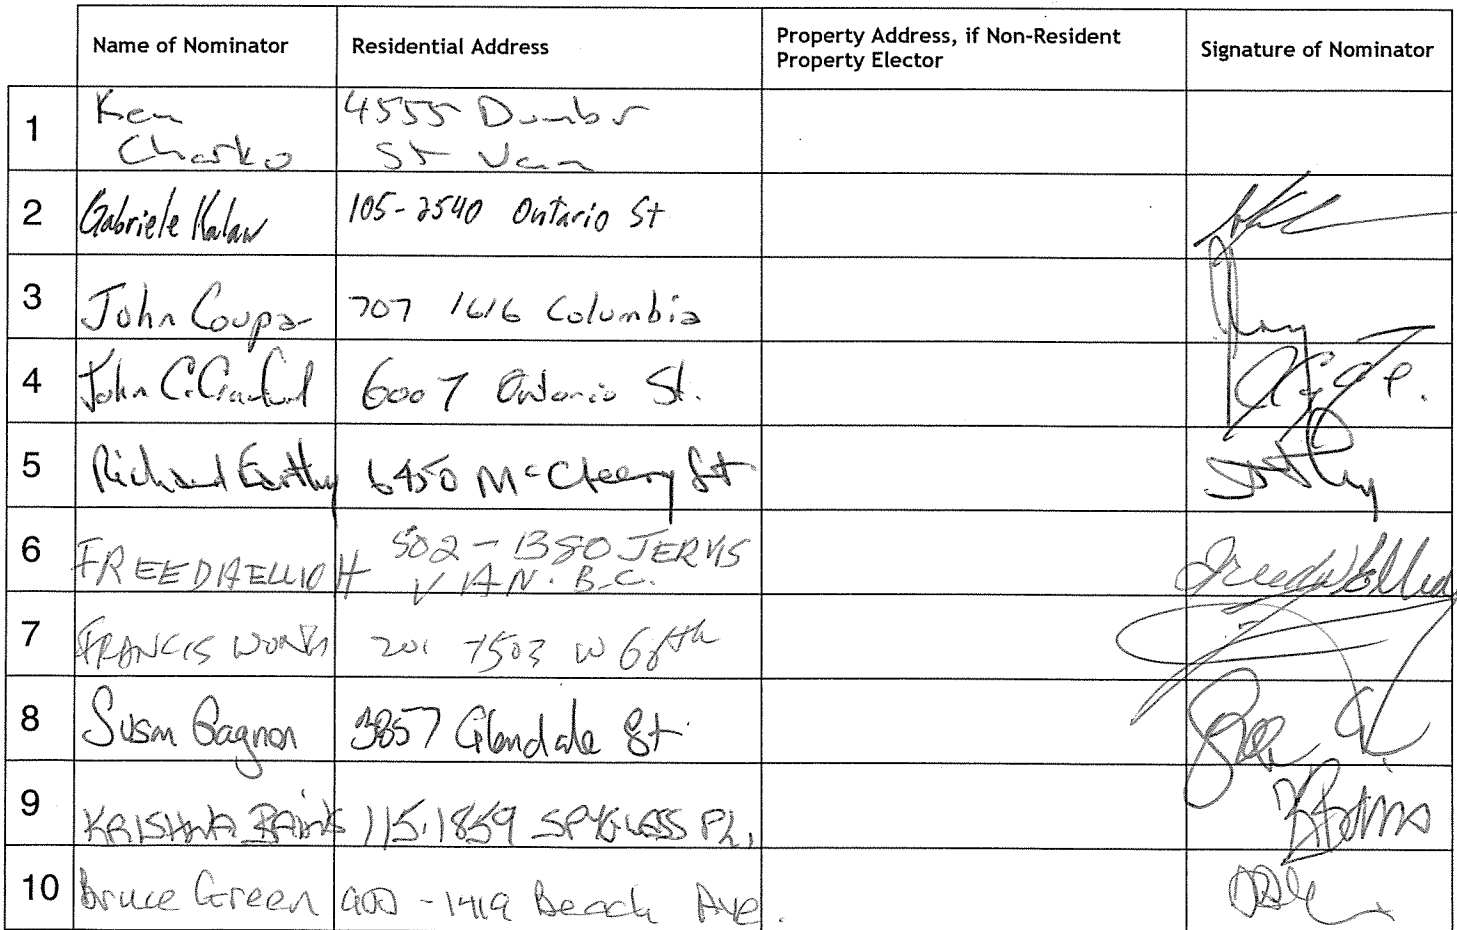 Name of Nominator Residential Address Property Address, if Non-Resident Property Elector Signature of Nominator
1 Ken Charko 4555 Dunbr St Van
2 Gabriele Kalaw 105-2540 Ontario St
3 John Coupar 707 1616 Columbia
4 John C. 6007 Ontario St.
5 Richard 6450 McCleery St
6 FREEDA ELLIOTT 502-1380 JERVIS VAN. B.C.
7 FRANCIS WONG 201 1503 W 68th
8 Susan Gagnon 3857 Glendale St
9 KRISHNA BAINS 115-1859 SPYGLASS PL.
10 Bruce Green 900-1419 Beach Ave.